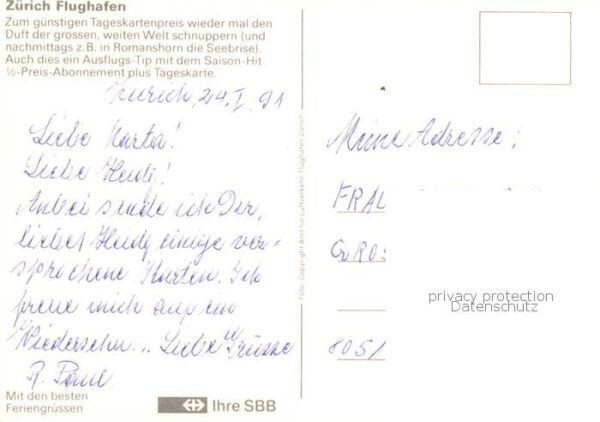 Zürich Flughafen
Zum günstigen Tageskartenpreis wieder mal den
Duft der grossen, weiten Welt schnuppern (und
nachmittags z.B. in Romanshorn die Seebrise).
Auch dies ein Ausflugs-Tip mit dem Saison-Hit
½-Preis-Abonnement plus Tageskarte.
Zuerich, 24.I.91
Liebe Marta!
Liebe Heidy!
Anbei sende ich Dir,
liebes Heidy einige ver-
sprochene Karten. Ich
freue mich auf ein
Wiedersehn... Liebe Grüsse
R.
Mit den besten
Feriengrüssen
Ihre SBB
Foto: Copyright Amt für Luftverkehr, Flughafen Zürich
Meine Adresse:
FRAU
GROS
privacy protection
Datenschutz
8051